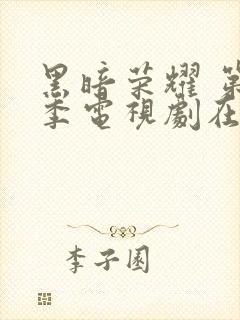 黑暗荣耀 第
季電視劇在
李子園